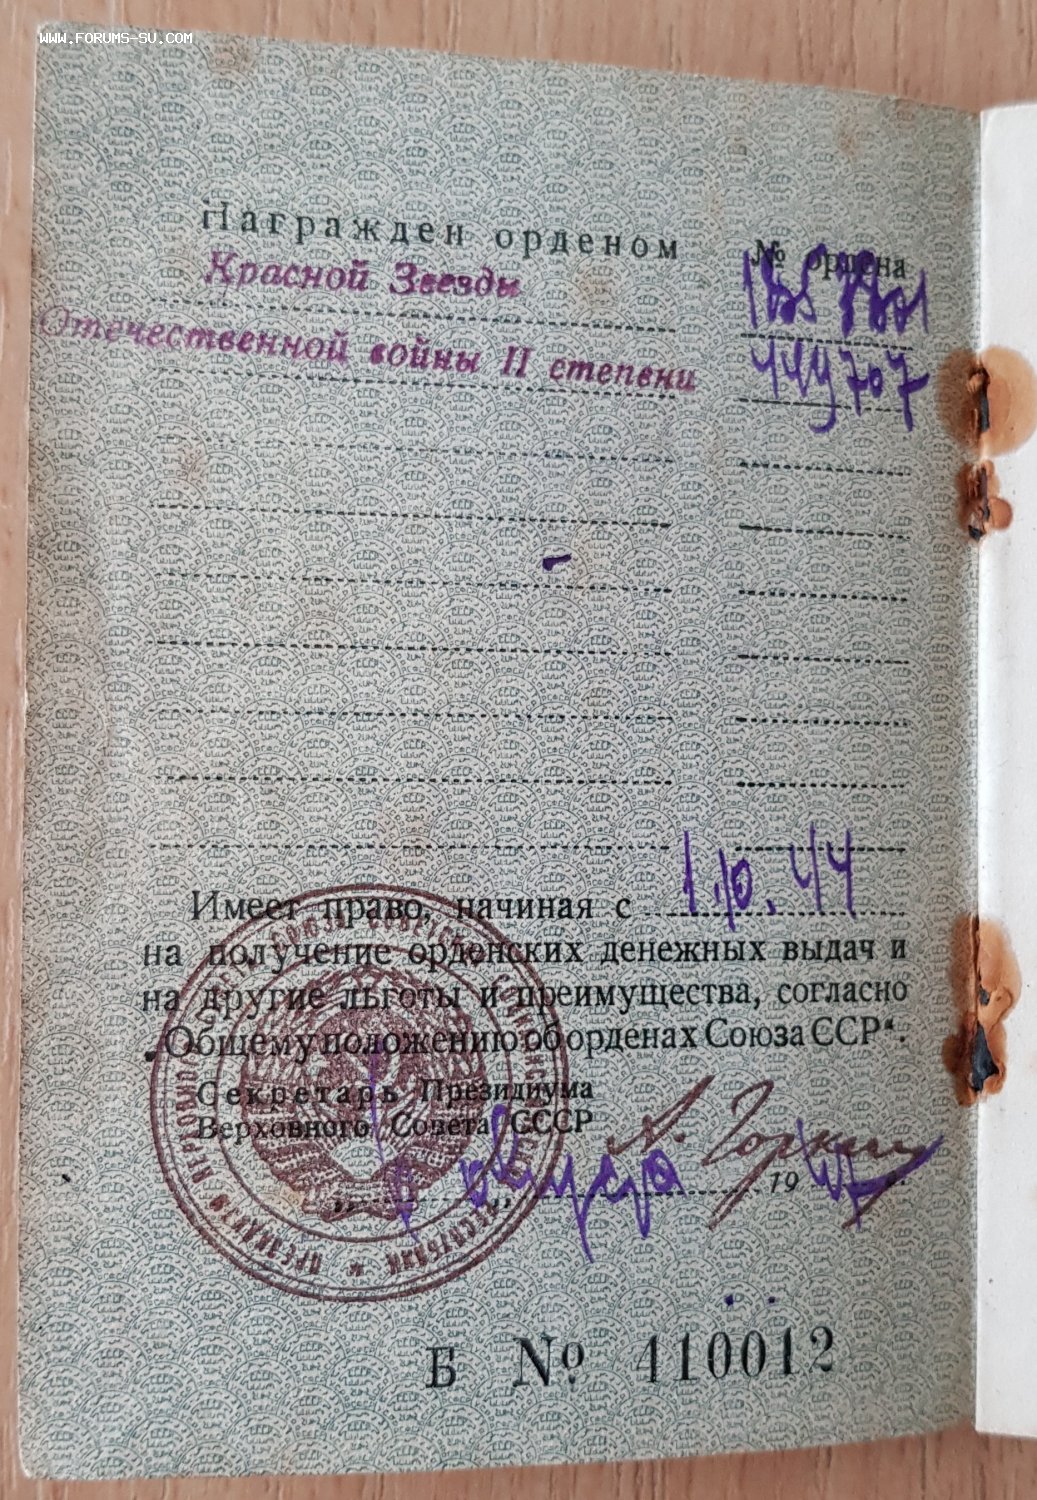 WWW.FORUMS-SU.COM
Награжден орденом № ордена
Красной Звезды
Отечественной войны II степени 449707
Имеет право, начиная с 1.10.44
на получение орденских денежных выдач и
на другие льготы и преимущества, согласно
„Общему положению об орденах Союза ССР“.
Секретарь Президиума
Верховного Совета СССР А. Горкин
19 47
Б № 410012